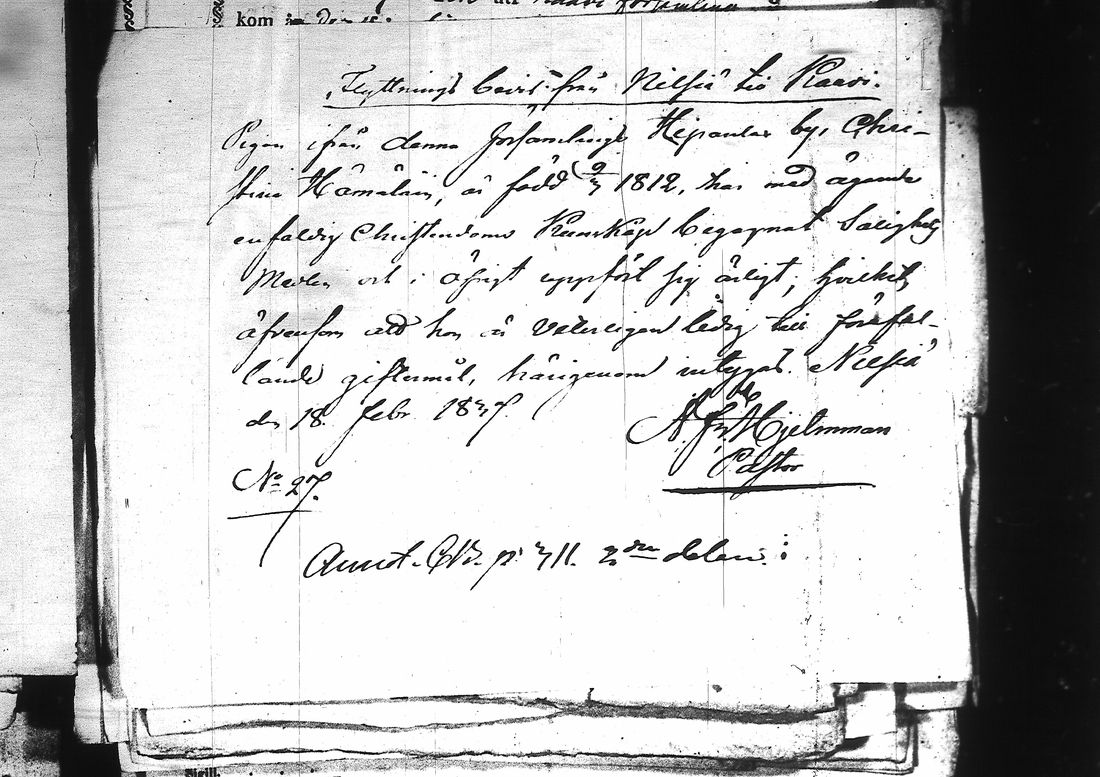 kom
Flyttnings bevis från Nilsiä till Kaavi.
Pigan ifrån denna församlings by, Chri-
stina är född 1812, har med ägande
enfaldig Christendoms Kunskap begagnat Salighets
Medlen och i öfrigt uppfört sig ärligt; hvilket,
äfvensom att hon är veterligen ledig till förefal-
lande giftermål, härigenom intygas. Nilsiä
den 18. Febr. 1837.
A. Hjelmman
Pastor
No 27.
Annot. p. 311. 2dra delen.
Sigill.